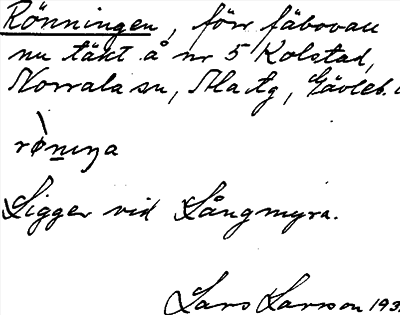 Rönningen, förr fäbovall
nu täkt å nr 5 Kolstad,
Norrala sn, Ala tg, Gävleb.
Ligger vid Långmyra.
Lars Larsson 193